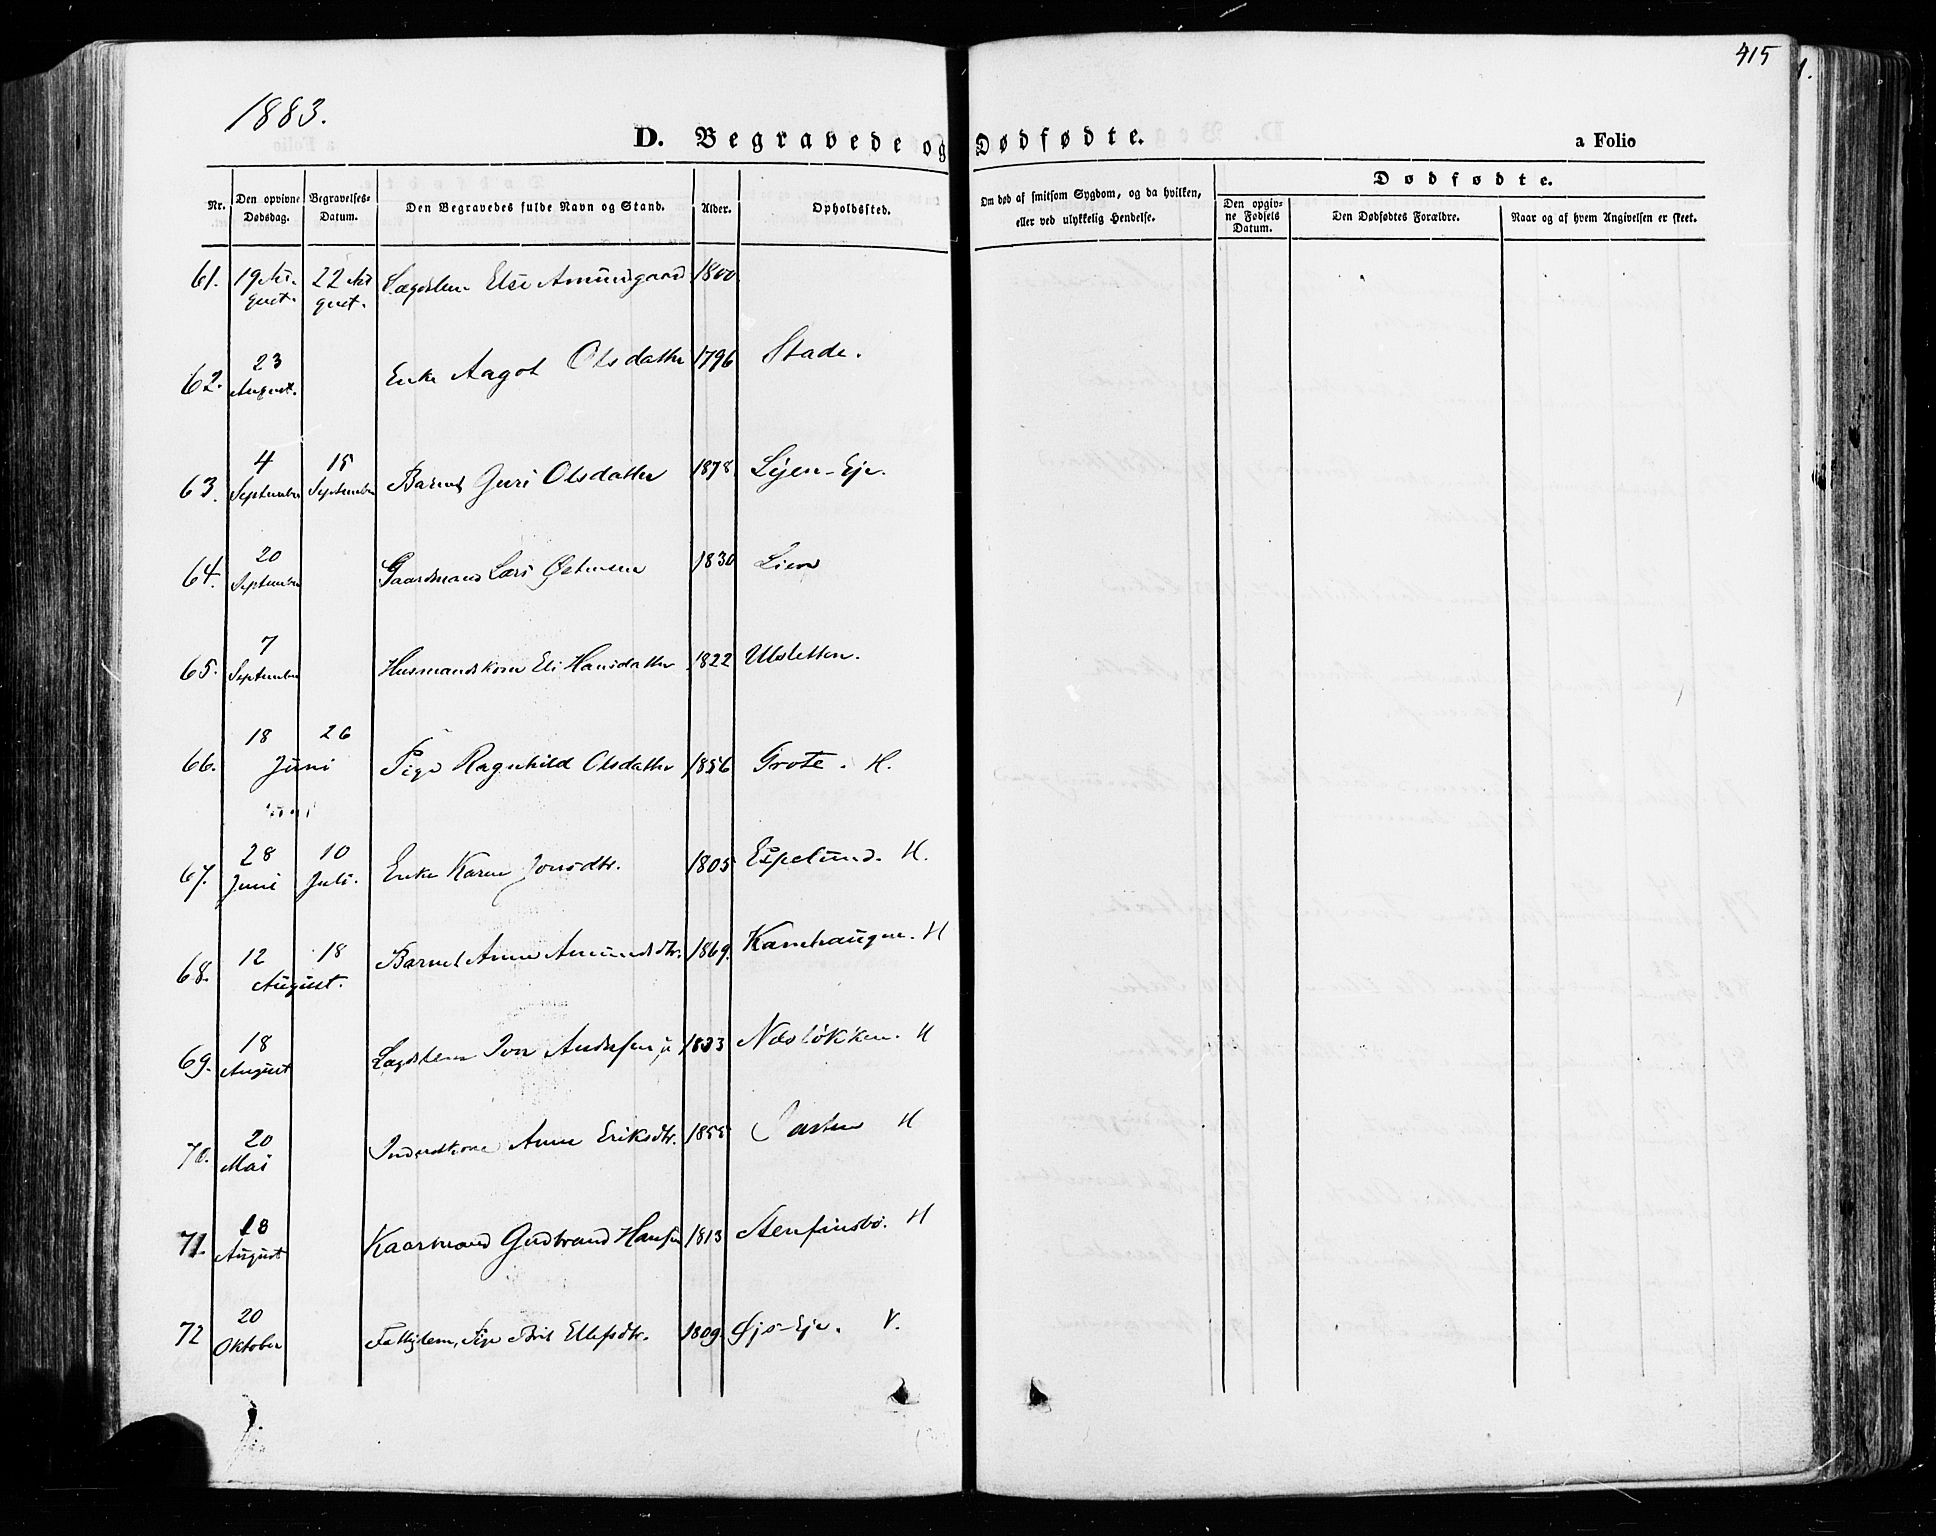 415
1883.
D. Begravede og Dødfødte. a Folio
Nr. Den opgivne Dødsdag. Begravelses-Datum. Den Begravedes fulde Navn og Stand. Alder. Opholdssted. Om død af smitsom Sygdom, og da hvilken, eller ved ulykkelig Hendelse. Dødfødte.
Den opgivne Fødsels Datum. Den Dødfødtes Forældre. Naar og af hvem Angivelsen er skeet.
61. 19 August. 22 August. Lægdslem Else Amundgaard 1800.
62. 23 August. Enke Aagot Olsdatter 1796 Stade.
63. 4 September 15 September Barnet Guri Olsdatter 1878. Lijen-Eje.
64. 20 September Gaardmand Lars Østensen 1830 Lien
65. 7 September Husmandskone Eli Hansdatter 1822 Ulsletten.
66. 18 26 Juni Pige Ragnhild Olsdatter 1856 Grote. H.
67. 28 Juni 10 Juli. Enke Karen Jonsdtr. 1805 Espelund. H.
68. 12 18 August. Barnet Anne Amundsdtr. 1869. H
69. 18 August Lægdslem Jon Andersen 1833 Næsløkken. H
70. 20 Mai Inderstkone Anne Eriksdtr. 1855 H
71. 18 August Kaarmand Gudbrand Hansen 1813 Stenfinsbø. H
72 20 Oktober Fattiglem, Pige Brit Ellefsdtr. 1809. Øjo-Eje. V.